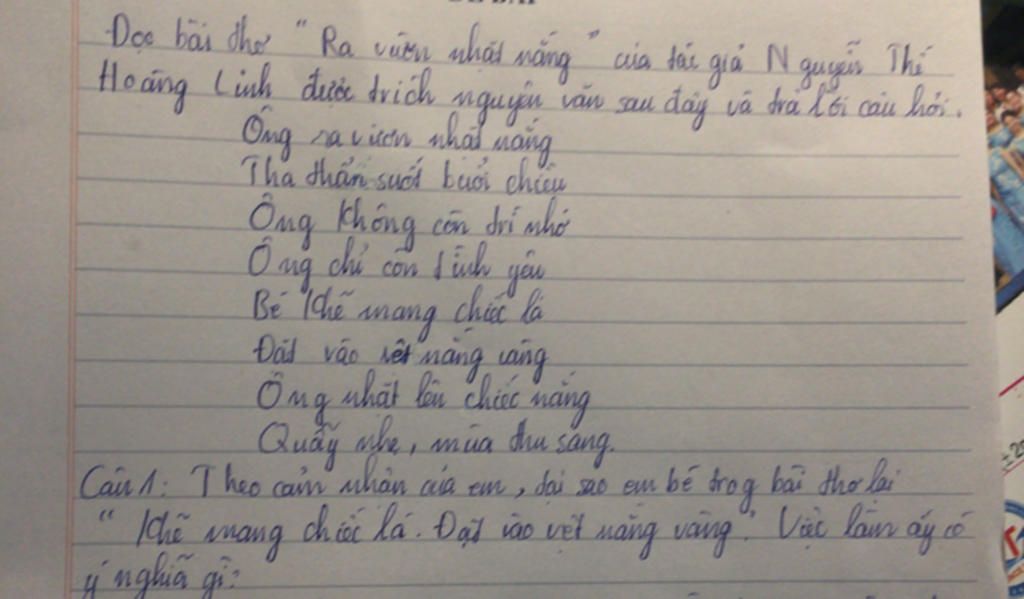 Đọc bài thơ " Ra vườn nhặt nắng " của tác giả Nguyễn Thế
Hoàng Linh được trích nguyên văn sau đây và trả lời câu hỏi.
Ông ra vườn nhặt nắng
Tha thẩn suốt buổi chiều
Ông không còn trí nhớ
Ông chỉ còn tình yêu
Bé khẽ mang chiếc lá
Đặt vào vệt nắng vàng
Ông nhặt lên chiếc nắng
Quẫy nhẹ, mùa thu sang.
Câu 1: Theo cảm nhận của em, tại sao em bé trog bài thơ lại
" Khẽ mang chiếc lá. Đặt vào vệt nắng vàng". Việc làm ấy có
ý nghĩa gì?